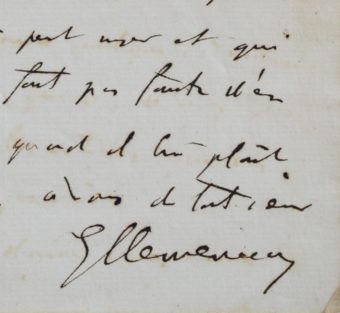 peut user et qui
fait pas faute d'en
quand il lui plaît
à vous de tout cœur
GClemenceau